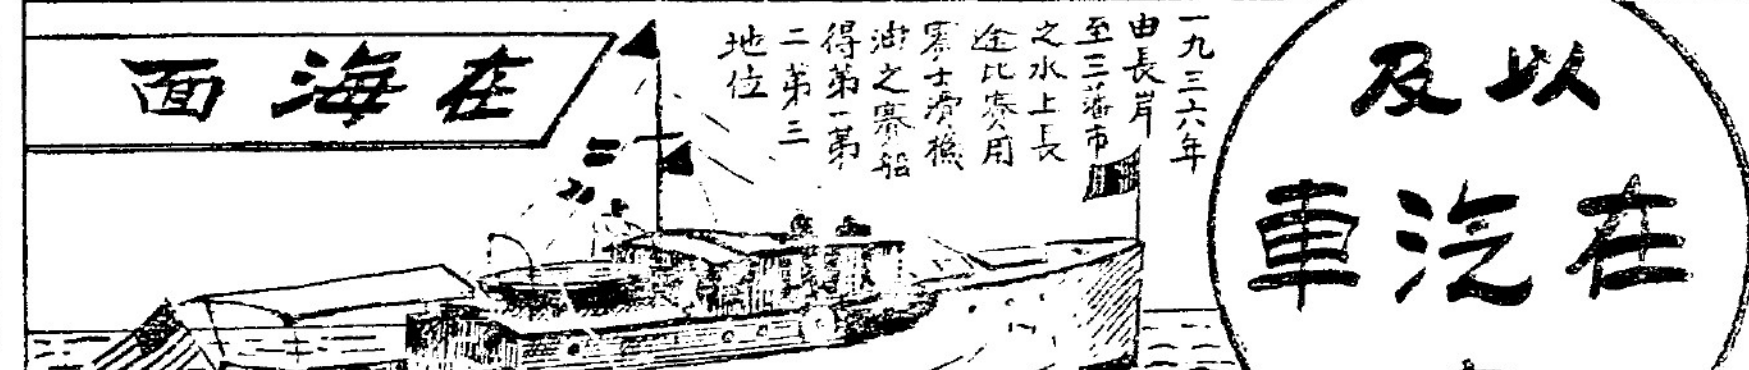 以及
在汽車
一九三六年
由長岸
至三藩市
之水上長
途比賽用
士滑機
油之賽船
得第一第
二第三
地位
在海面